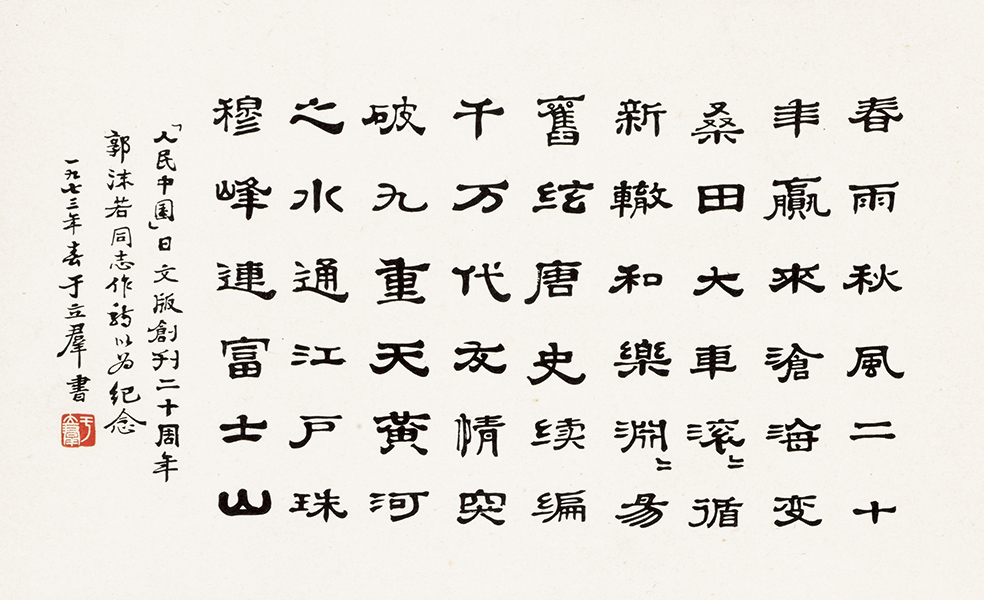 春雨秋風二十
年贏來滄海变
桑田大車滚〻循
新轍和樂淵〻易
舊絃唐史续编
千万代友情突
破九重天黄河
之水通江户珠
穆峰連富士山
「人民中国」日文版創刊二十周年
郭沫若同志作詩以為紀念
一九七三年春于立羣書
于立羣